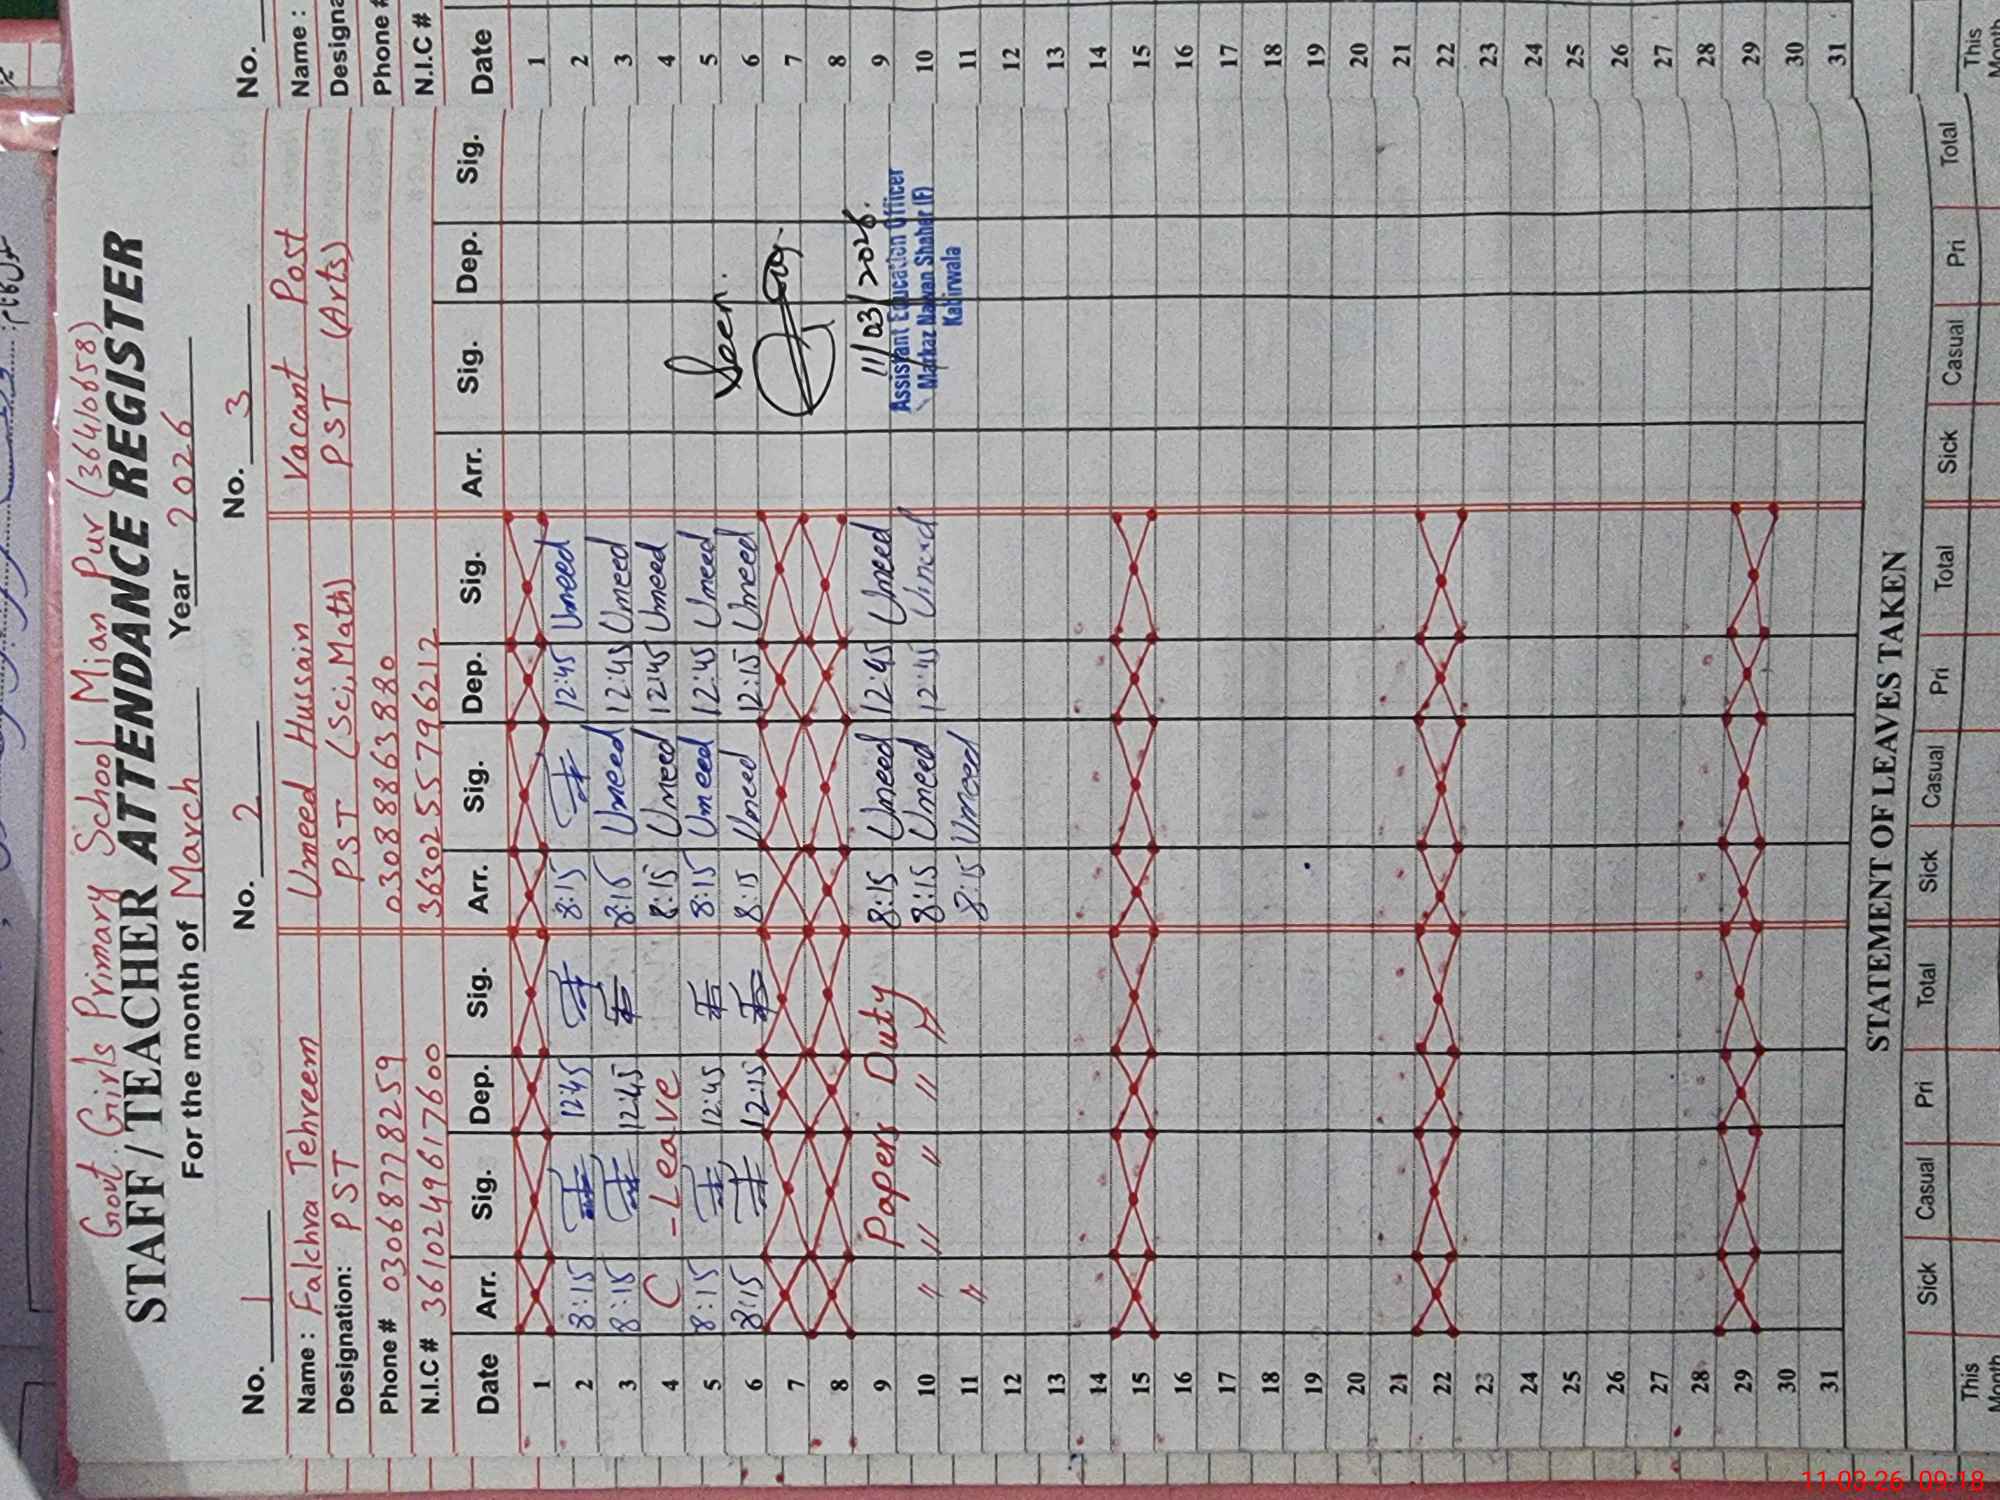 Govt. Girls Primary School Mian Pur (36410658)
STAFF / TEACHER ATTENDANCE REGISTER
For the month of March Year 2026
No. 1 No. 2 No. 3 No.
Name : Falchra Tehreem Umeed Hussain Vacant Post Name :
Designation: PST PST (Sci, Math) PST (Arts) Designa
Phone # 03068778259 03088863880 Phone #
N.I.C # 3610249617600 3630255796212 N.I.C #
Date Arr. Sig. Dep. Sig. Arr. Sig. Dep. Sig. Arr. Sig. Dep. Sig. Date
1 1
2 8:15 12:45 8:15 12:45 Umeed 2
3 8:15 12:45 8:15 Umeed 12:45 Umeed 3
4 C - Leave 8:15 Umeed 12:45 Umeed 4
5 8:15 12:45 8:15 Umeed 12:45 Umeed Seen. 5
6 8:15 12:15 8:15 Umeed 12:15 Umeed 6
7 7
8 8
9 Papers Duty 8:15 Umeed 12:45 Umeed 11/03/2026. 9
Assistant Education Officer
10 〃 〃 〃 〃 〃 8:15 Umeed 12:45 Umeed Markaz Nawan Shaher (F) 10
11 〃 8:15 Umeed Kabirwala 11
12 12
13 13
14 14
15 15
16 16
17 17
18 18
19 19
20 20
21 21
22 22
23 23
24 24
25 25
26 26
27 27
28 28
29 29
30 30
31 31
STATEMENT OF LEAVES TAKEN
Sick Casual Pri Total Sick Casual Pri Total Sick Casual Pri Total
This Month This Month
11-03-26 09:18